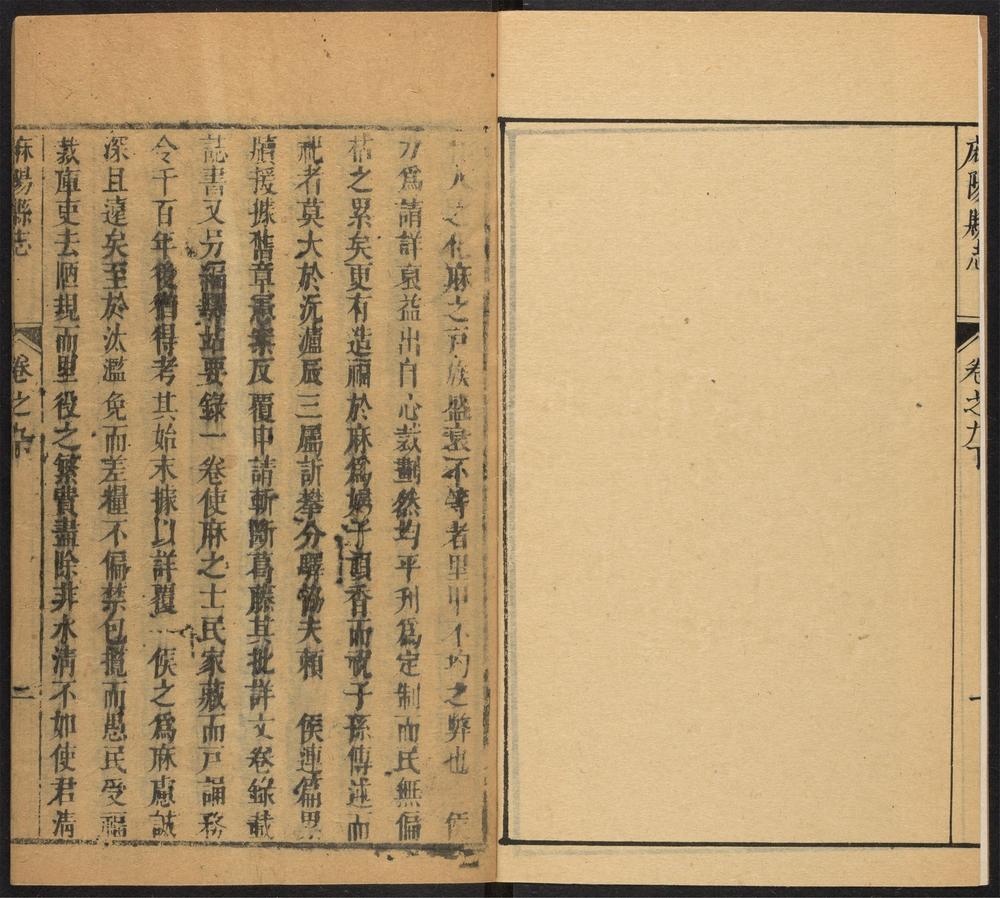 麻陽縣志 卷之九下 一
之化麻之戸族盛衰不等者里甲不均之弊也 侯
力爲請詳裒益出自心裁劃然均平刋爲定制而民無偏
枯之累矣更有造福於麻爲婦子頂香而祝子孫傳述而
祀者莫大於沅瀘辰三屬訢攀分驛協夫賴 侯連篇累
牘援據舊章憲案反覆申請斬斷葛藤其批詳文卷錄載
誌書又另編驛站要錄一卷使麻之士民家藏而戸誦務
令千百年後猶得考其始末據以詳覆 侯之爲麻慮誠
深且遠矣至於汰濫免而差糧不偏禁包攬而愚民受福
裁庫吏去陋規而里役之繁費盡除非水清不如使君清
麻陽縣志 卷之 二